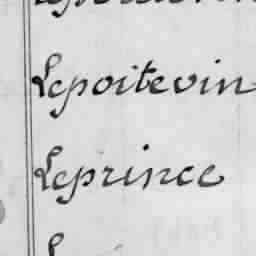 Lepoitevin
Leprince